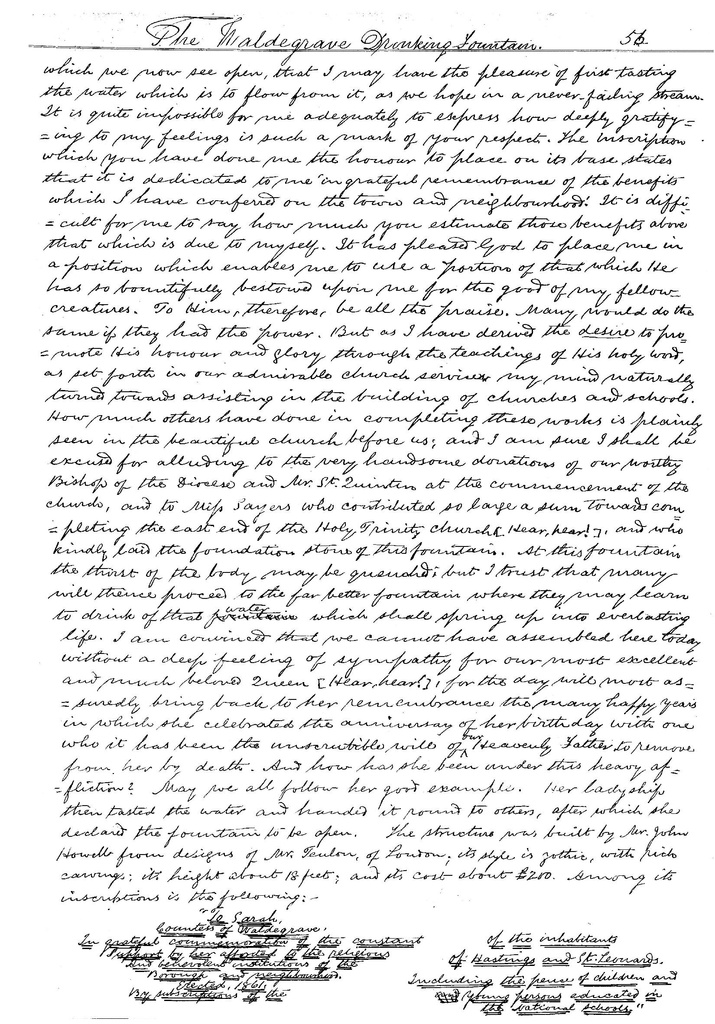 The Waldegrave Drinking Fountain. 56
which we now see open, that I may have the pleasure of first tasting
the water which is to flow from it, as we hope in a never-failing stream.
It is quite impossible for me adequately to express how deeply gratify=
=ing to my feelings is such a mark of your respect. The inscription
which you have done me the honour to place on its base states
that it is dedicated to me "in grateful remembrance of the benefits
which I have conferred on the town and neighbourhood." It is diffi=
=cult for me to say how much you estimate those benefits above
that which is due to myself. It has pleased God to place me in
a position which enables me to use a portion of that which He
has so bountifully bestowed upon me for the good of my fellow-
creatures. To Him, therefore, be all the praise. Many would do the
same if they had the power. But as I have derived the desire to pro=
=mote His honour and glory, through the teachings of His holy word,
as set forth in our admirable church services my mind naturally
turned towards assisting in the building of churches and schools.
How much others have done in completing these works is plainly
seen in the beautiful church before us; and I am sure I shall be
excused for alluding to the very handsome donations of our worthy
Bishop of the Diocese and Mr. St. Quintin at the commencement of the
church, and to Miss Sayers who contributed so large a sum towards com=
=pleting the east end of the Holy Trinity church [Hear, hear!], and who
kindly laid the foundation stone of this fountain. At this fountain
the thirst of the body may be quenched; but I trust that many
will thence proceed to the far better fountain where they may learn
to drink of that water which shall spring up into everlasting
life. I am convinced that we cannot have assembled here today
without a deep feeling of sympathy for our most excellent
and much beloved Queen [Hear, hear!], for the day will most as=
=suredly bring back to her remembrance the many happy years
in which she celebrated the anniversay of her birthday with one
who it has been the unscrutible will of our Heavenly Father to remove
from her by death. And how has she been under this heavy af=
=fliction? May we all follow her good example. Her ladyship
then tasted the water and handed it round to others, after which she
declared the fountain to be open. The structure was built by Mr. John
Howell from designs of Mr. Teulon, of London; its style is gothic, with rich
carvings; its height about 18 feet; and its cost about £200. Among its
inscriptions is the following:-
"To Sarah,
Countess of Waldegrave,
In grateful commemoration of the constant
support by her afforded to the religious
and benevolent institutions of the
Borough and neighbourhood.
Erected, 1861,
By subscriptions of the
of the inhabitants
of Hastings and St. Leonards.
Including the pence of children and
Young persons educated in
the National Schools."